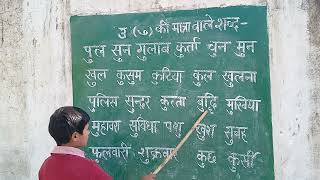 उ ( ु ) की मात्रा वाले शब्द-
पुल सुन गुलाब कुर्ता चुन मुन
खुल कुसुम कुटिया कुल खुलना
पुलिस सुन्दर कुत्ता बुद्धि मुखिया
मुहावरा सुविधा पशु खुश सुबह
फुलवारी शुक्रवार कुछ कुर्सी